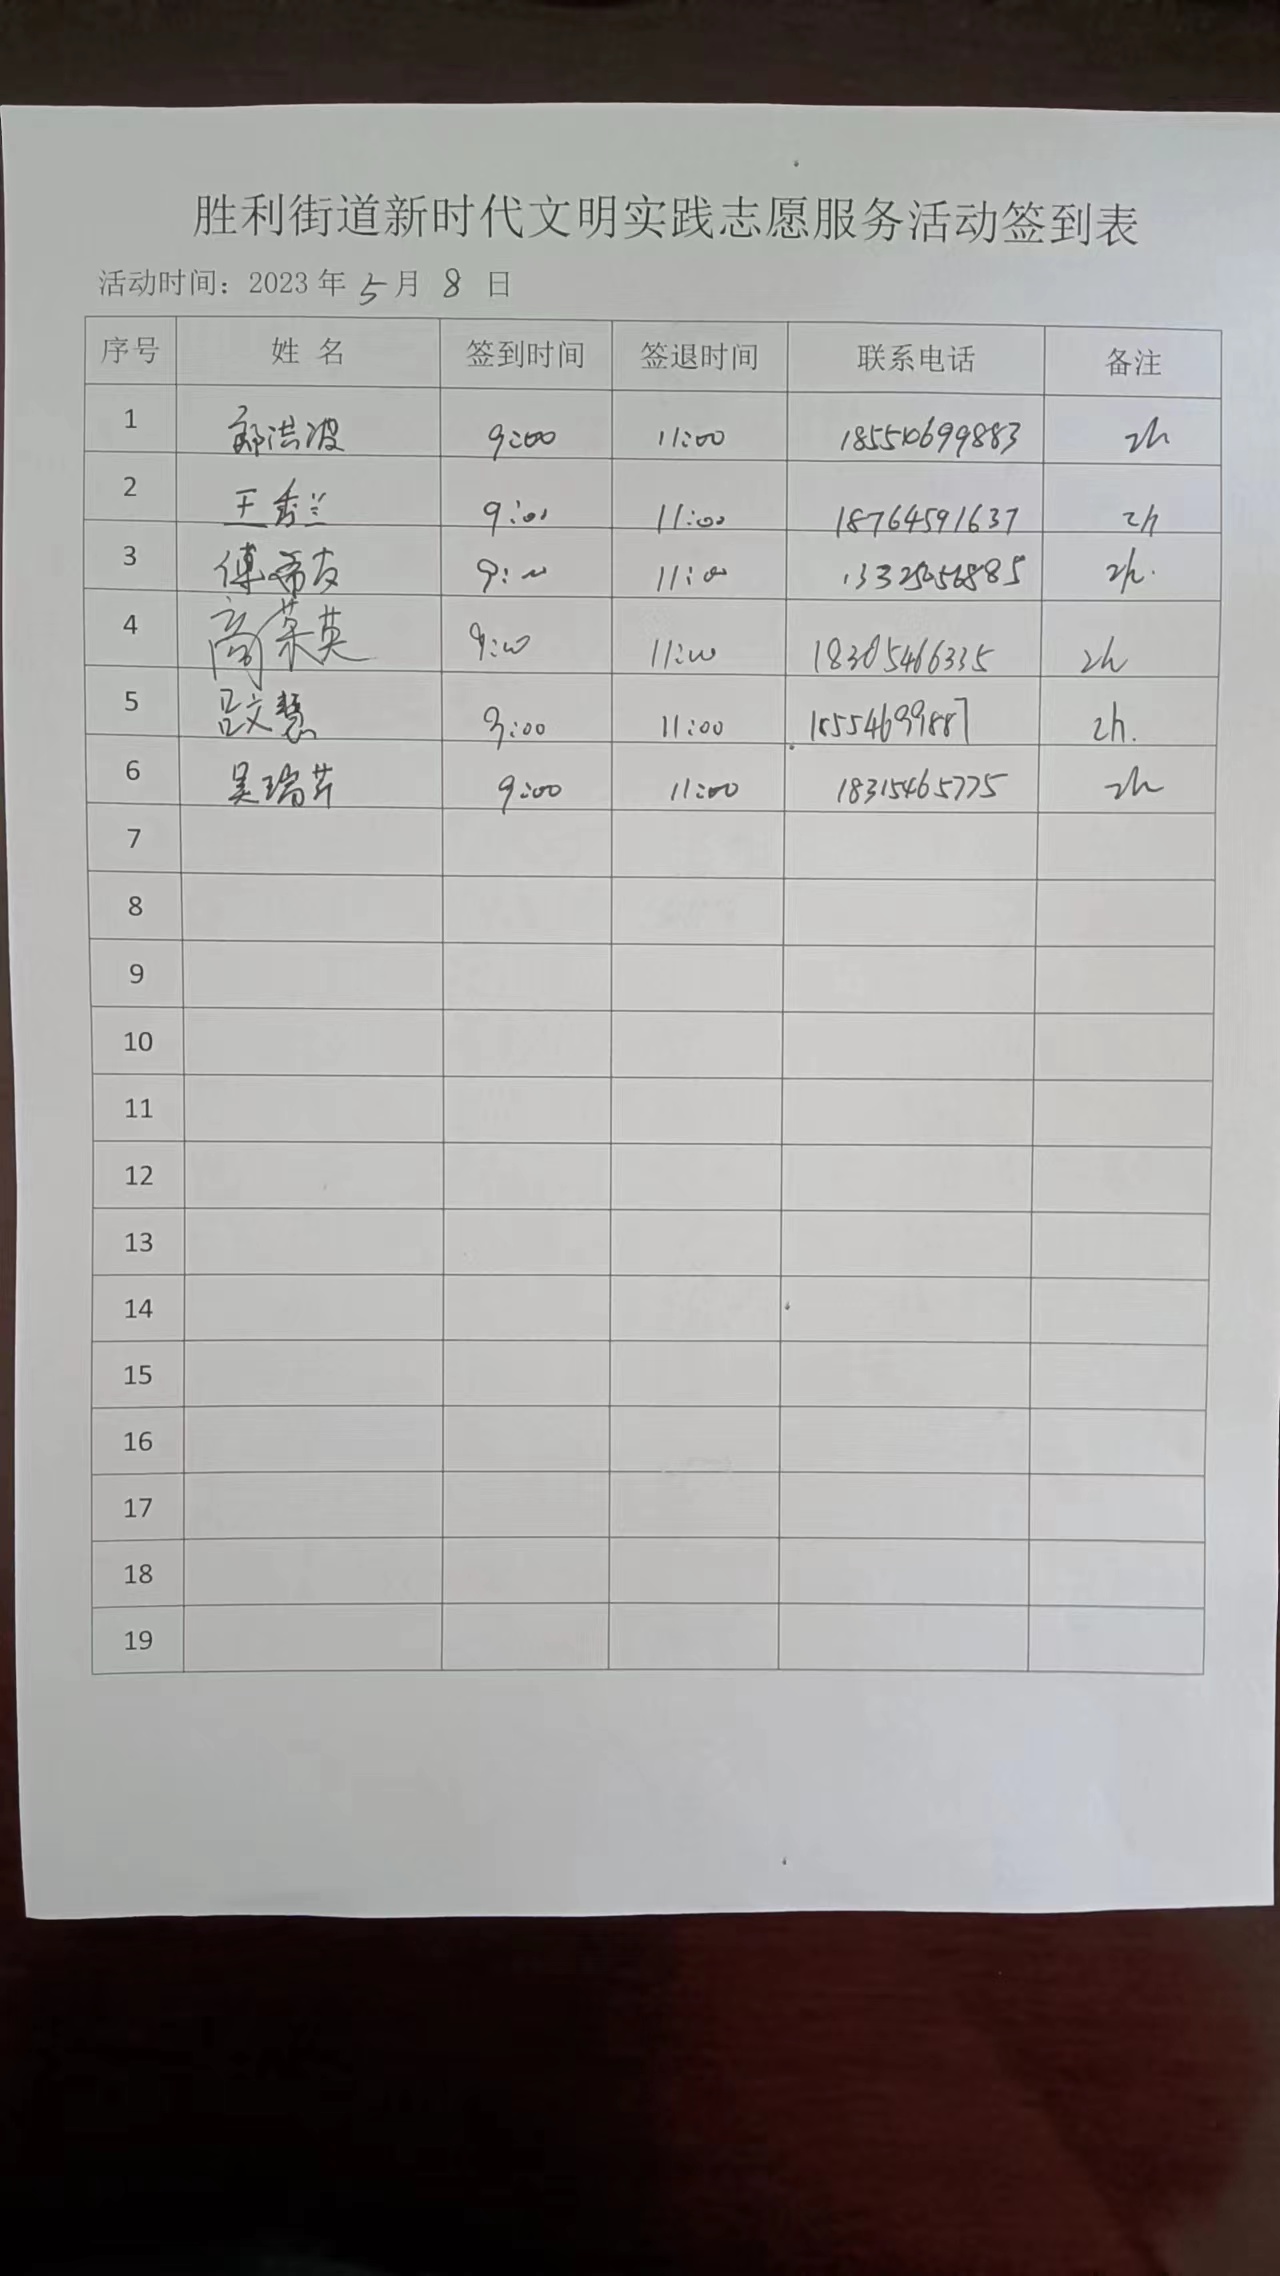 胜利街道新时代文明实践志愿服务活动签到表
活动时间：2023 年 5 月 8 日
序号 姓 名 签到时间 签退时间 联系电话 备注
1 郭洪波 9:00 11:00 18551069883 2h
2 王秀兰 9:00 11:00 18764591637 2h
3 傅希友 9:00 11:00 2h.
4 高荣英 9:00 11:00 18305466335 2h
5 吕文慧 9:00 11:00 18554699887 2h.
6 吴瑞芹 9:00 11:00 18315465775 2h
7
8
9
10
11
12
13
14
15
16
17
18
19